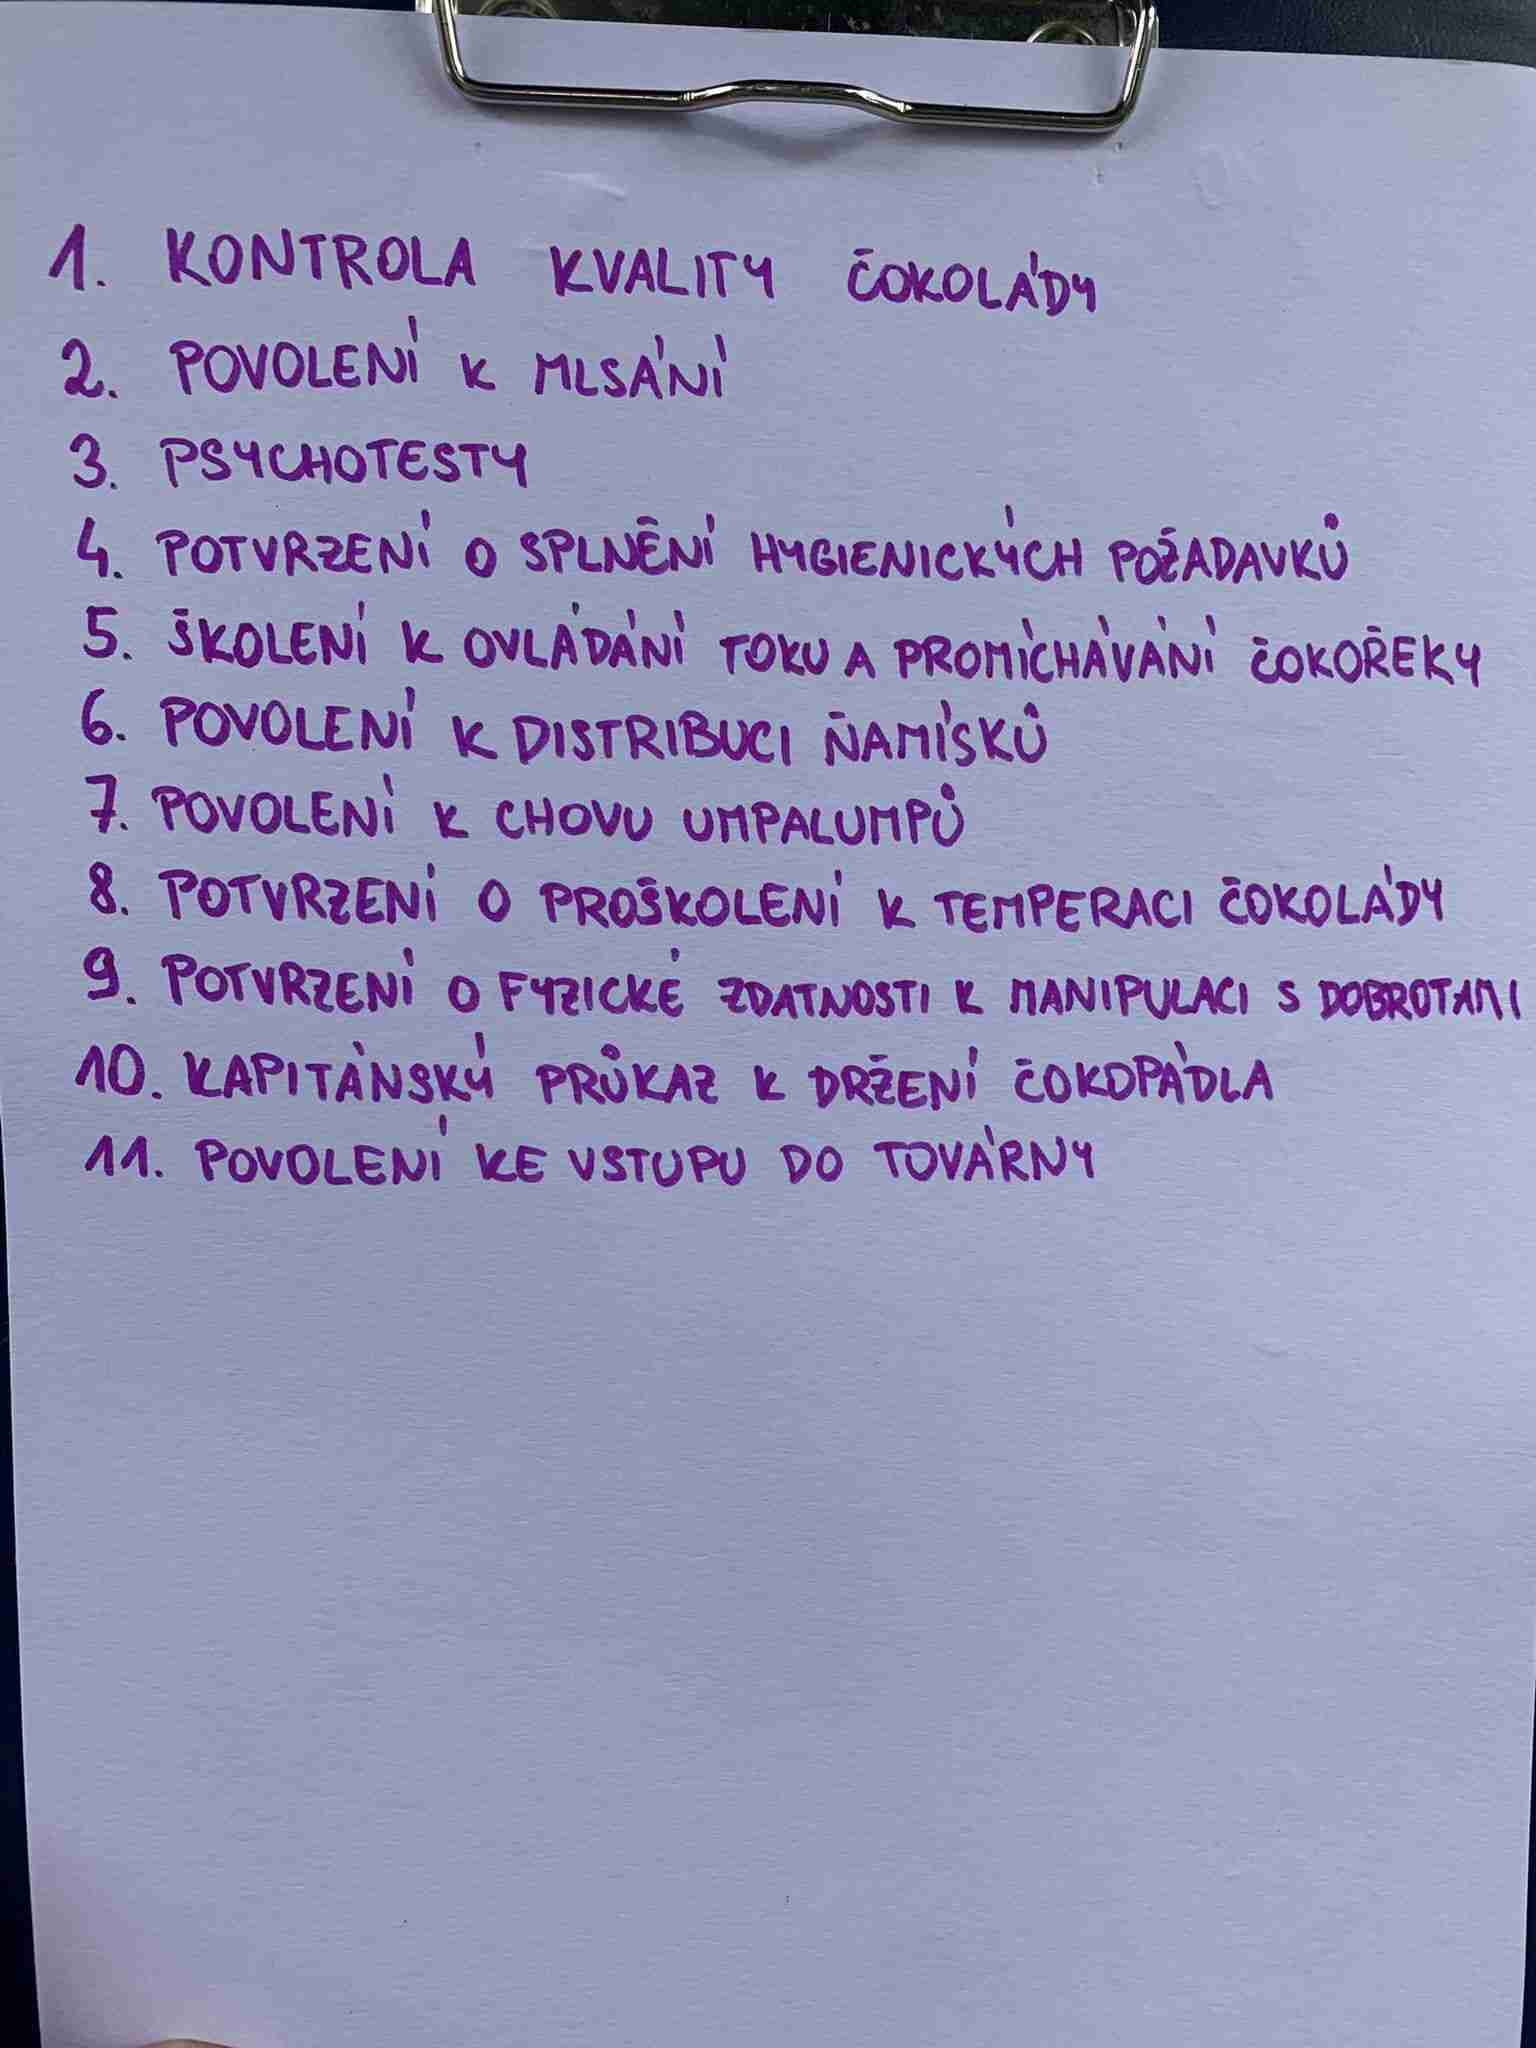 1. KONTROLA KVALITY ČOKOLÁDY
2. POVOLENÍ K MLSÁNÍ
3. PSYCHOTESTY
4. POTVRZENÍ O SPLNĚNÍ HYGIENICKÝCH POŽADAVKŮ
5. ŠKOLENÍ K OVLÁDÁNÍ TOKU A PROMÍCHÁVÁNÍ ČOKOŘEKY
6. POVOLENÍ K DISTRIBUCI ŇAMÍSKŮ
7. POVOLENÍ K CHOVU UMPALUMPŮ
8. POTVRZENÍ O PROŠKOLENÍ K TEMPERACI ČOKOLÁDY
9. POTVRZENÍ O FYZICKÉ ZDATNOSTI K MANIPULACI S DOBROTAMI
10. KAPITÁNSKÝ PRŮKAZ K DRŽENÍ ČOKOPÁDLA
11. POVOLENÍ KE VSTUPU DO TOVÁRNY